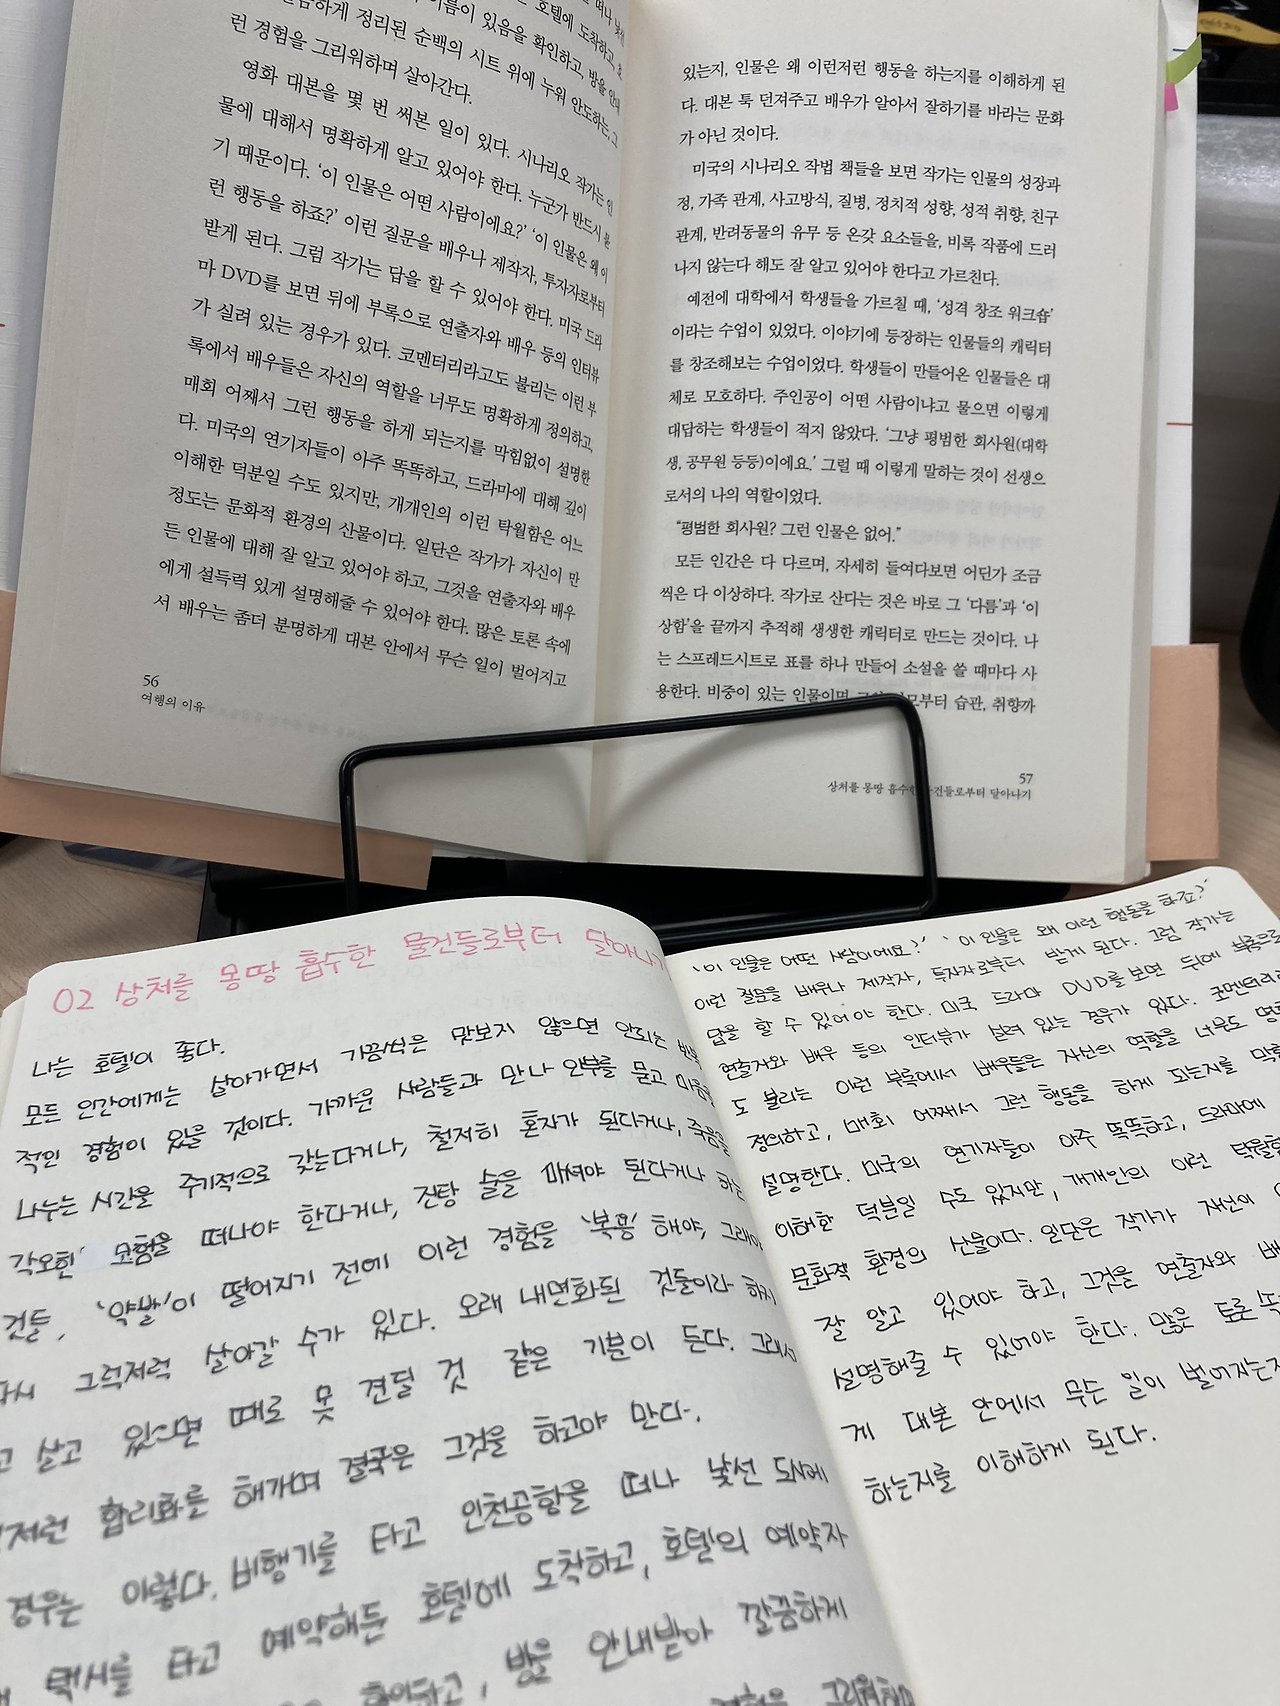 이름이 있음을 확인하고, 방을 안내
하게 정리된 순백의 시트 위에 누워 안도하는, 그
런 경험을 그리워하며 살아간다.
영화 대본을 몇 번 써본 일이 있다. 시나리오 작가는 인
물에 대해서 명확하게 알고 있어야 한다. 누군가 반드시 묻
기 때문이다. ‘이 인물은 어떤 사람이에요?’ ‘이 인물은 왜 이
런 행동을 하죠?’ 이런 질문을 배우나 제작자, 투자자로부터
받게 된다. 그럼 작가는 답을 할 수 있어야 한다. 미국 드라
마 DVD를 보면 뒤에 부록으로 연출자와 배우 등의 인터뷰
가 실려 있는 경우가 있다. 코멘터리라고도 불리는 이런 부
록에서 배우들은 자신의 역할을 너무도 명확하게 정의하고,
매회 어째서 그런 행동을 하게 되는지를 막힘없이 설명한
다. 미국의 연기자들이 아주 똑똑하고, 드라마에 대해 깊이
이해한 덕분일 수도 있지만, 개개인의 이런 탁월함은 어느
정도는 문화적 환경의 산물이다. 일단은 작가가 자신이 만
든 인물에 대해 잘 알고 있어야 하고, 그것을 연출자와 배우
에게 설득력 있게 설명해줄 수 있어야 한다. 많은 토론 속에
서 배우는 좀더 분명하게 대본 안에서 무슨 일이 벌어지고
56
여행의 이유
있는지, 인물은 왜 이런저런 행동을 하는지를 이해하게 된
다. 대본 툭 던져주고 배우가 알아서 잘하기를 바라는 문화
가 아닌 것이다.
미국의 시나리오 작법 책들을 보면 작가는 인물의 성장과
정, 가족 관계, 사고방식, 질병, 정치적 성향, 성적 취향, 친구
관계, 반려동물의 유무 등 온갖 요소들을, 비록 작품에 드러
나지 않는다 해도 잘 알고 있어야 한다고 가르친다.
예전에 대학에서 학생들을 가르칠 때, ‘성격 창조 워크숍’
이라는 수업이 있었다. 이야기에 등장하는 인물들의 캐릭터
를 창조해보는 수업이었다. 학생들이 만들어온 인물들은 대
체로 모호하다. 주인공이 어떤 사람이냐고 물으면 이렇게
대답하는 학생들이 적지 않았다. ‘그냥 평범한 회사원(대학
생, 공무원 등등)이에요.’ 그럴 때 이렇게 말하는 것이 선생으
로서의 나의 역할이었다.
“평범한 회사원? 그런 인물은 없어.”
모든 인간은 다 다르며, 자세히 들여다보면 어딘가 조금
씩은 다 이상하다. 작가로 산다는 것은 바로 그 ‘다름’과 ‘이
상함’을 끝까지 추적해 생생한 캐릭터로 만드는 것이다. 나
는 스프레드시트로 표를 하나 만들어 소설을 쓸 때마다 사
용한다. 비중이 있는 인물이면 습관, 취향까
57
상처를 몽땅 흡수한 달아나기
02 상처를 몽땅 흡수한 물건들로부터 달아나기
나는 호텔이 좋다.
모든 인간에게는 살아가면서 가끔씩은 맛보지 않으면 안되는 반복
적인 경험이 있을 것이다. 가까운 사람들과 만나 안부를 묻고 마음을
나누는 시간을 주기적으로 갖는다거나, 철저히 혼자가 된다거나, 죽음을
각오한 모험을 떠나야 한다거나, 진탕 술을 마셔야 된다거나 하는
것들, ‘약발’이 떨어지기 전에 이런 경험을 ‘복용’해야, 그래야
다시 그럭저럭 살아갈 수가 있다. 오래 내면화된 것들이라 하지
고 살고 있으면 때로 못 견딜 것 같은 기분이 든다. 그래서
저런 합리화를 해가며 결국은 그것을 하고야 만다.
경우는 이렇다. 비행기를 타고 인천공항을 떠나 낯선 도시에
택시를 타고 예약해둔 호텔에 도착하고, 호텔의 예약자
확인하고, 방을 안내받아 깔끔하게
경험을 그리워하며
‘이 인물은 어떤 사람이에요?’ ‘이 인물은 왜 이런 행동을 하죠?’
이런 질문을 배우나 제작자, 투자자로부터 받게 된다. 그럼 작가는
답을 할 수 있어야 한다. 미국 드라마 DVD를 보면 뒤에 부록으로
연출자와 배우 등의 인터뷰가 실려 있는 경우가 있다. 코멘터리라
도 불리는 이런 부록에서 배우들은 자신의 역할을 너무도 명확
정의하고, 매회 어째서 그런 행동을 하게 되는지를 막힘
설명한다. 미국의 연기자들이 아주 똑똑하고, 드라마에
이해한 덕분일 수도 있지만, 개개인의 이런 탁월함
문화적 환경의 산물이다. 일단은 작가가 자신이
잘 알고 있어야 하고, 그것을 연출자와 배
설명해줄 수 있어야 한다. 많은 토론 속
게 대본 안에서 무슨 일이 벌어지는지
하는지를 이해하게 된다.